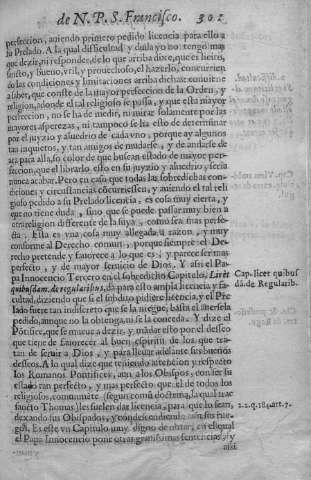 de N. P. S. Francisco. 301
perfeccion, auiendo primero pedido licencia para ello a
su Prelado. A la qual dificultad y duda yo no tengo mas
que dezir, ni responder, de lo que arriba dixe, que es licito,
sancto, y bueno, vtil, y prouechoso, el hazerlo, concurrien
do las condiciones y limitaciones arriba dichas: conuiene
a saber, que conste de la mayor perfeccion de la Orden, y
religion, adonde el tal religioso se passa, y que esta mayor
perfeccion, no se ha de medir, ni mirar solamente por las
mayores asperezas, ni tampoco se ha esto de determinar
por el juyzio y aluedrio de cada vno, porque ay algunos
tan inquietos, y tan amigos de mudarse, y de andarse de
acà para allà, so color de que buscan estado de mayor per-
feccion, que el librarlo esto en su juyzio y aluedrio, seria
nunca acabar. Pero en caso que todas las sobredichas con
diciones y circunstancias cõcurriessen, y auiendo el tal reli
gioso pedido a su Prelado licencia, es cosa muy cierta, y
que no tiene duda, sino que se puede passar muy bien a
otra religion differente de la suya, como sea mas perfe-
cta. Ella es vna cosa muy allegada a razon, y muy
conforme al Derecho comun, porque siempre el De-
recho pretende y fauorece a lo que es, y parece ser mas
perfecto, y de mayor seruicio de Dios. Y assi el Pa-
pa Innocencio Tercero en el sobredicho Capitulo, Licèt
quibusdam, de regularibus, dà para esto amplia licencia y fa-
cultad, diziendo que si el subdito pidiere licencia, y el Pre
lado fuere tan indiscreto que se la niegue, basta el auersela
pedido, aunque no la obtenga, ni se la conceda. Y dize el
Pontifice, que se mueue a dezir, y mãdar esto por el desseo
que tiene de fauorecer al buen espiritu de los que tra-
tan de seruir a Dios, y para lleuar adelante sus buenos
desseos. A lo qual dize que teniendo attencion y respecto
los Romanos Pontifices, aun a los Obispos, con ser su
estado tan perfecto, y mas perfecto que el de todos los
religiosos, comunmẽte (segun comũ doctrina, la qual trae
sancto Thomas) les suelen dar licencia, para que lo sean,
dexando sus Obispados, y condescendiendo a sus rue-
gos. Es este vn Capitulo muy digno de notar, en el qual
el Papa Innocencio pone otras grauissimas sentencias, y
assi
Cap. licet quibus
dã. de Regularib.
2.2.q.184.art.7.